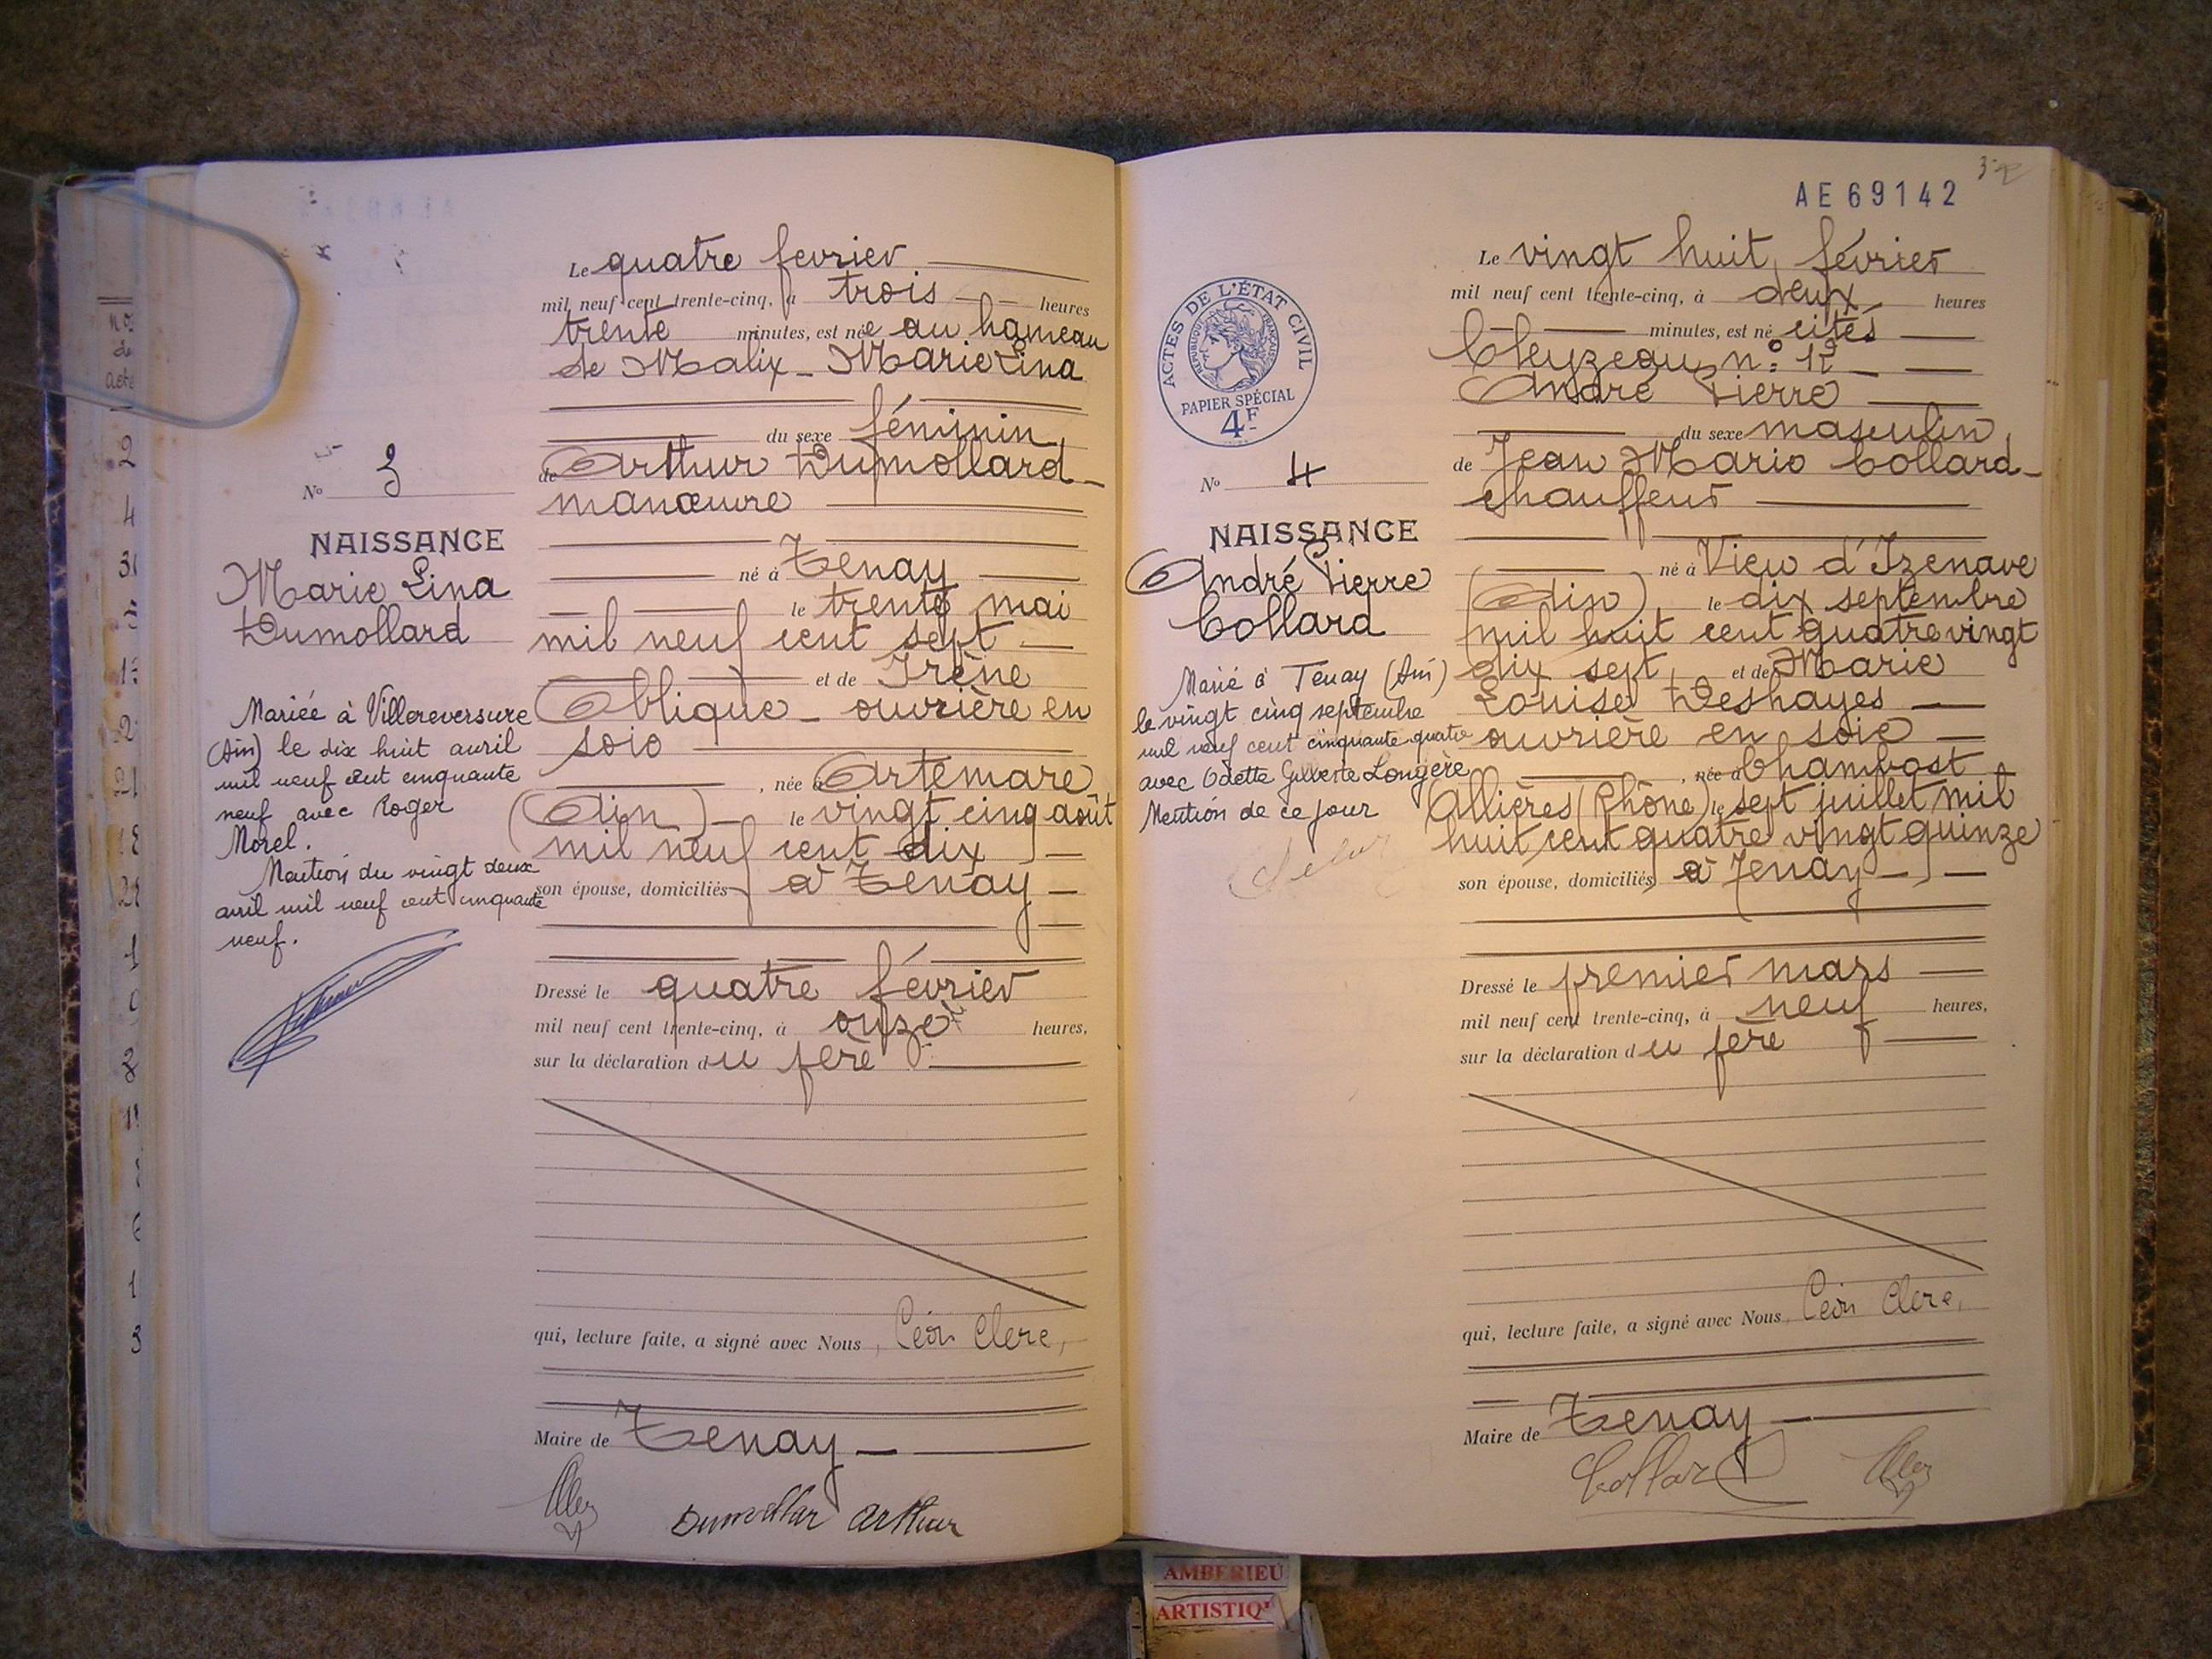 Le quatre fevrier
mil neuf cent trente-cinq, à trois heures
trente minutes, est née au hameau
de Malix - Marie Lina
du sexe féminin,
de Arthur Dumollard -
manœuvre
né à Tenay
le trente mai
mil neuf cent sept
et de Irène
Oblique - ouvrière en
soie
, née à Artemare
(Ain) le vingt cinq août
mil neuf cent dix
son épouse, domiciliés à Tenay
Dressé le quatre février
mil neuf cent trente-cinq, à onze heures,
sur la déclaration du père
qui, lecture faite, a signé avec Nous, Léon Clerc,
Maire de Tenay
Dumollar Arthur
No 3
NAISSANCE
Marie Lina
Dumollard
Mariée à Villereversure
(Ain) le dix huit avril
mil neuf cent cinquante
neuf avec Roger
Morel.
Mention du vingt deux
avril mil neuf cent cinquante
neuf.
No
de
acte
2
4
AE 69142
ACTES DE L'ÉTAT CIVIL
RÉPUBLIQUE FRANÇAISE
PAPIER SPÉCIAL
4F
Le vingt huit février
mil neuf cent trente-cinq, à deux heures
minutes, est né cités
Cleyzeau n: 12
André Pierre
du sexe masculin,
de Jean Marie Collard -
chauffeur
né à Vieu d'Izenave
(Ain), le dix septembre
mil huit cent quatre vingt
dix sept, et de Marie
Louise Deshayes
ouvrière en soie
, née à Chambost
Allières (Rhône) le sept juillet mil
huit cent quatre vingt quinze
son épouse, domiciliés à Tenay
Dressé le premier mars
mil neuf cent trente-cinq, à neuf heures,
sur la déclaration du père
qui, lecture faite, a signé avec Nous, Léon Clerc,
Maire de Tenay
Collard
No 4
NAISSANCE
André Pierre
Collard
Marié à Tenay (Ain)
le vingt cinq septembre
mil neuf cent cinquante quatre
avec Odette Longère
Mention de ce jour
AMBERIEU
ARTISTIQ